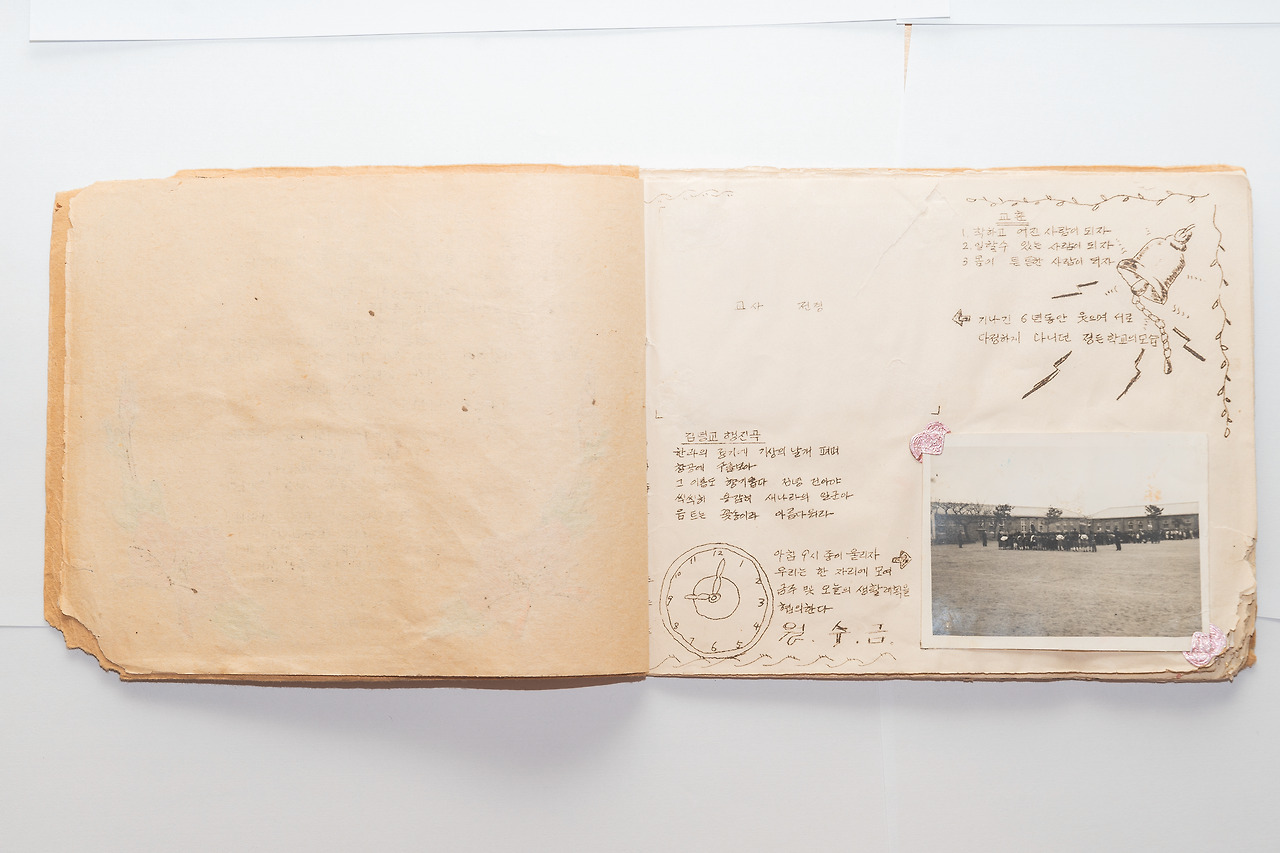 교훈
1. 착하고 어진 사람이 되자
2. 일할수 있는 사람이 되자
3 몸이 튼튼한 사람이 되자
지나긴 6년동안 웃으며 서로
다정하게 다니던 정든학교의모습
교사 전경
행진곡
한라의 기상의 날개 펴며
그 이름도 향기롭다
씩씩하 새나라의 일군아
움트는 꽃동이라 아름다워라
아침 9시 종이 울리자
우리는 한 자리에 모여
금주 및 오늘의 생활계획을
협의한다
월. 수. 금.
12
1
2
3
4
5
6
7
8
9
10
11